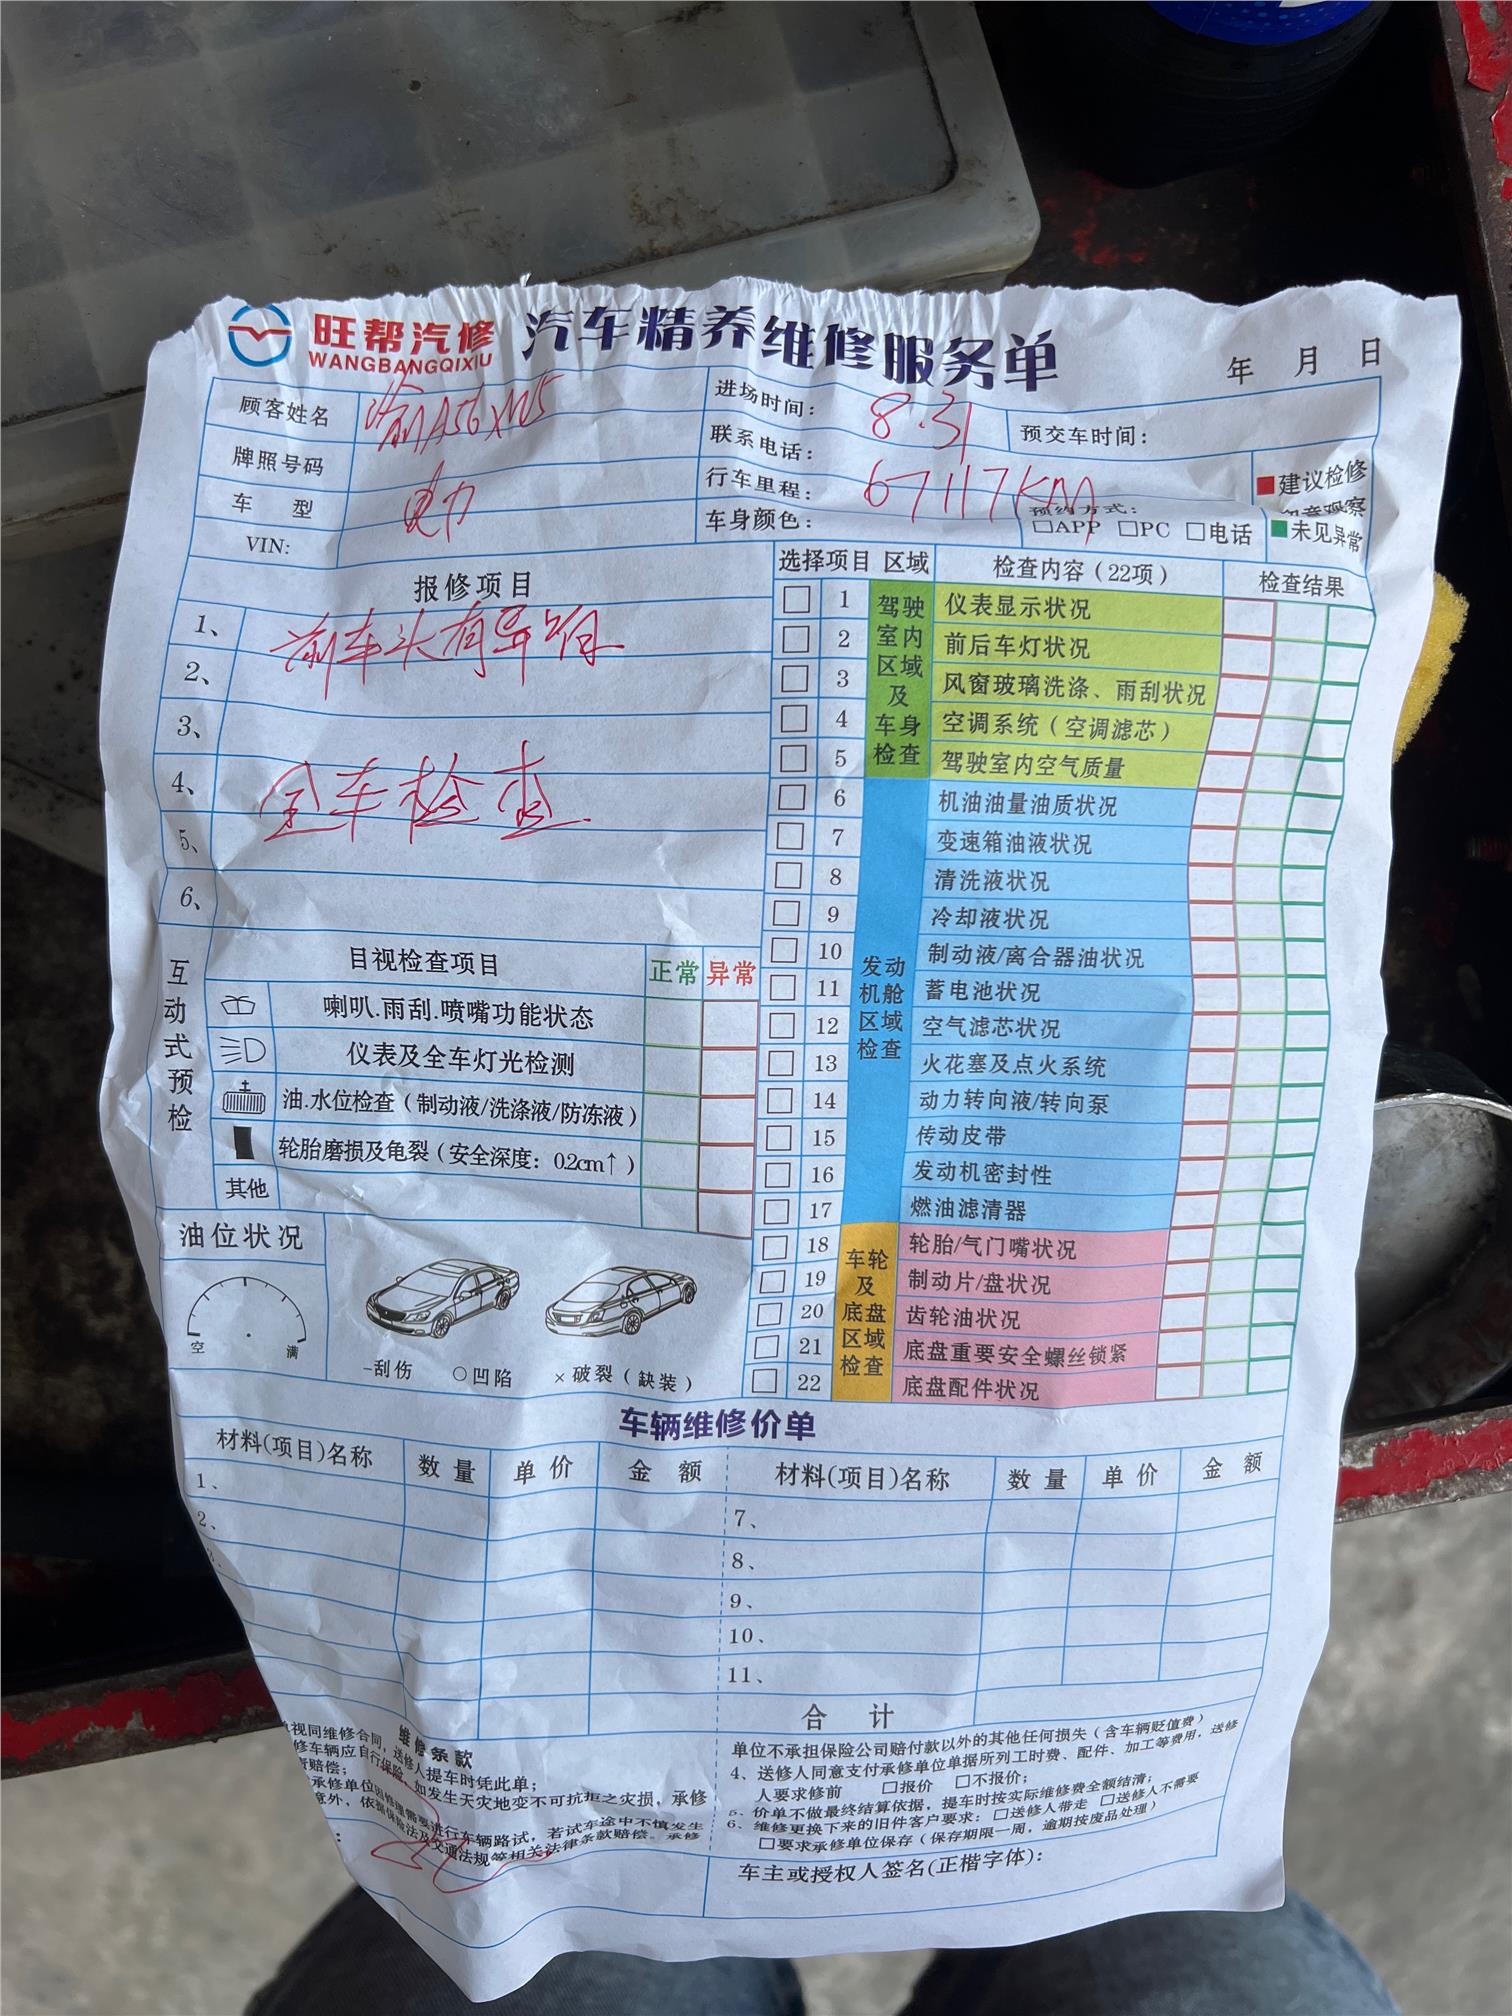 旺帮汽修
WANGBANGQIXIU
汽车精养维修服务单
年 月 日
顾客姓名
进场时间: 8.31
预交车时间:
牌照号码
联系电话:
车 型 电力
行车里程: 67117KM
预约方式:
□APP □PC □电话
VIN:
车身颜色:
建议检修
未见异常
报修项目
1、前车头有异响
2、
3、
4、全车检查
5、
6、
选择项目 区域 检查内容(22项) 检查结果
驾驶室内区域及车身检查
1 仪表显示状况
2 前后车灯状况
3 风窗玻璃洗涤、雨刮状况
4 空调系统(空调滤芯)
5 驾驶室内空气质量
发动机舱区域检查
6 机油油量油质状况
7 变速箱油液状况
8 清洗液状况
9 冷却液状况
10 制动液/离合器油状况
11 蓄电池状况
12 空气滤芯状况
13 火花塞及点火系统
14 动力转向液/转向泵
15 传动皮带
16 发动机密封性
17 燃油滤清器
车轮及底盘区域检查
18 轮胎/气门嘴状况
19 制动片/盘状况
20 齿轮油状况
21 底盘重要安全螺丝锁紧
22 底盘配件状况
互动式预检
目视检查项目 正常 异常
喇叭.雨刮.喷嘴功能状态
仪表及全车灯光检测
油.水位检查(制动液/洗涤液/防冻液)
轮胎磨损及龟裂(安全深度:0.2cm↑)
其他
油位状况
空 满
-刮伤 ○凹陷 ×破裂(缺装)
车辆维修价单
材料(项目)名称 数量 单价 金额 材料(项目)名称 数量 单价 金额
1、
2、
7、
8、
9、
10、
11、
合 计
维修条款
视同维修合同,送修人提车时凭此单;
修车辆应自行保险,如发生天灾地变不可抗拒之灾损,承修
赔偿;
承修单位因修理需要进行车辆路试,若试车途中不慎发生
意外,依据保险法及交通法规等相关法律条款赔偿。承修
单位不承担保险公司赔付款以外的其他任何损失(含车辆贬值费)
4、送修人同意支付承修单位单据所列工时费、配件、加工等费用,送修
人要求修前 □报价 □不报价;
5、价单不做最终结算依据,提车时按实际维修费全额结清;
6、维修更换下来的旧件客户要求:□送修人带走 □送修人不需要
□要求承修单位保存(保存期限一周,逾期按废品处理)
车主或授权人签名(正楷字体):